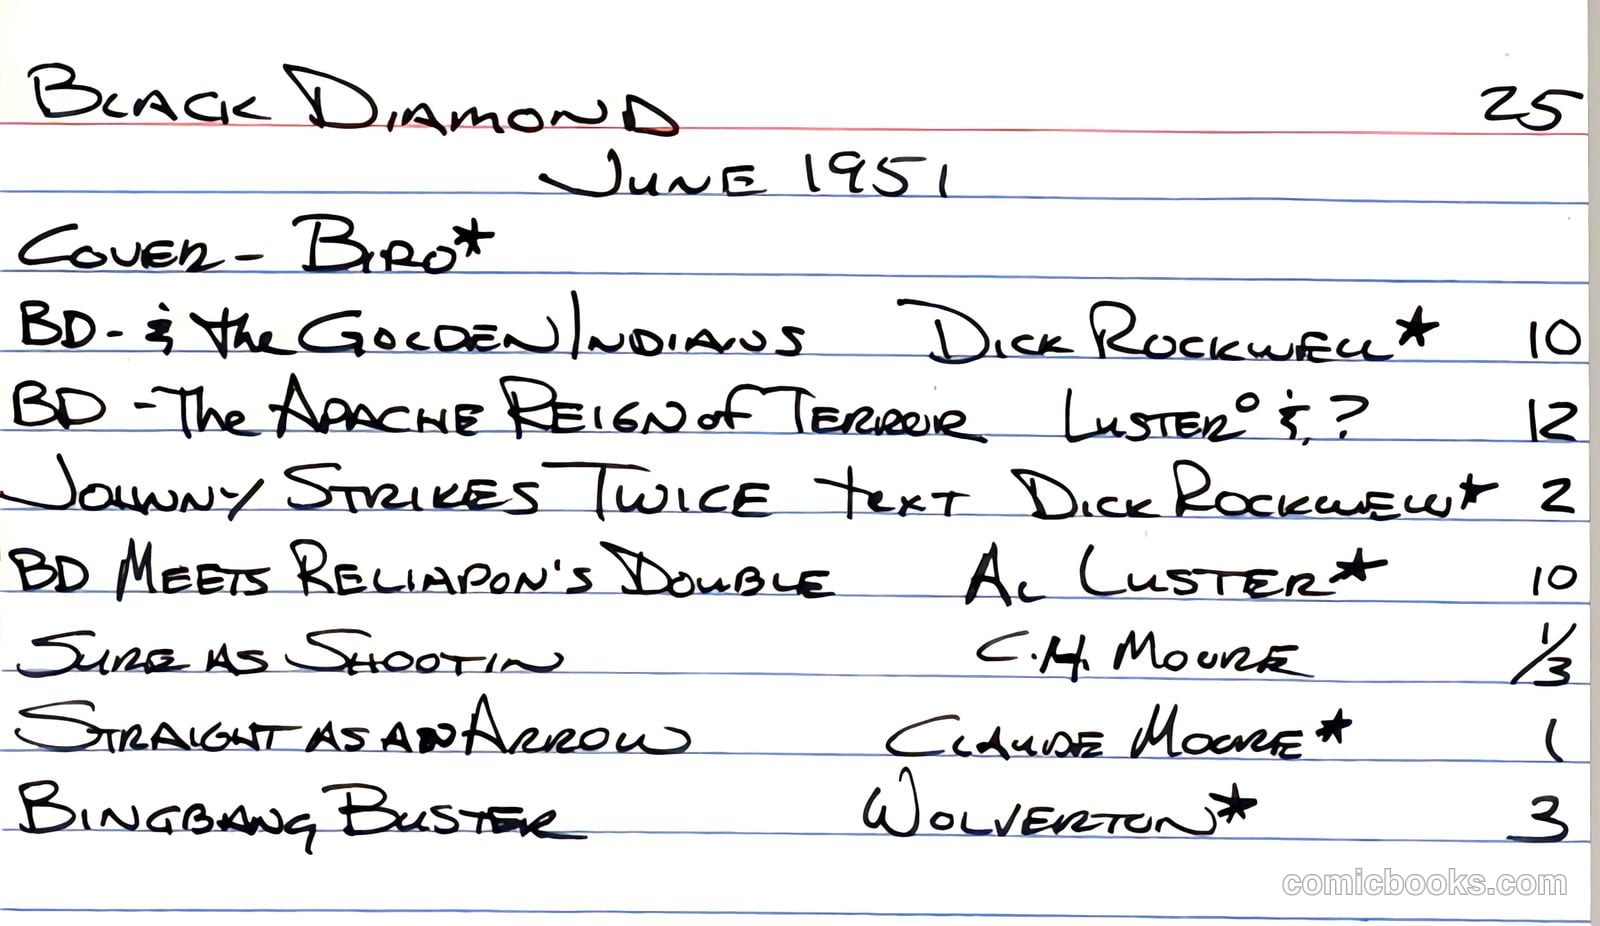 BLACK DIAMOND 25
JUNE 1951
COVER - BIRO*
BD - & the GOLDEN INDIANS DICK ROCKWELL* 10
BD - The APACHE REIGN of TERROR LUSTER° & ? 12
JOHNNY STRIKES TWICE text DICK ROCKWELL* 2
BD MEETS RELIAPON'S DOUBLE AL LUSTER* 10
SURE AS SHOOTIN C.H. MOORE 1/3
STRAIGHT AS AN ARROW CLAUDE MOORE* 1
BINGBANG BUSTER WOLVERTON* 3
comicbooks.com